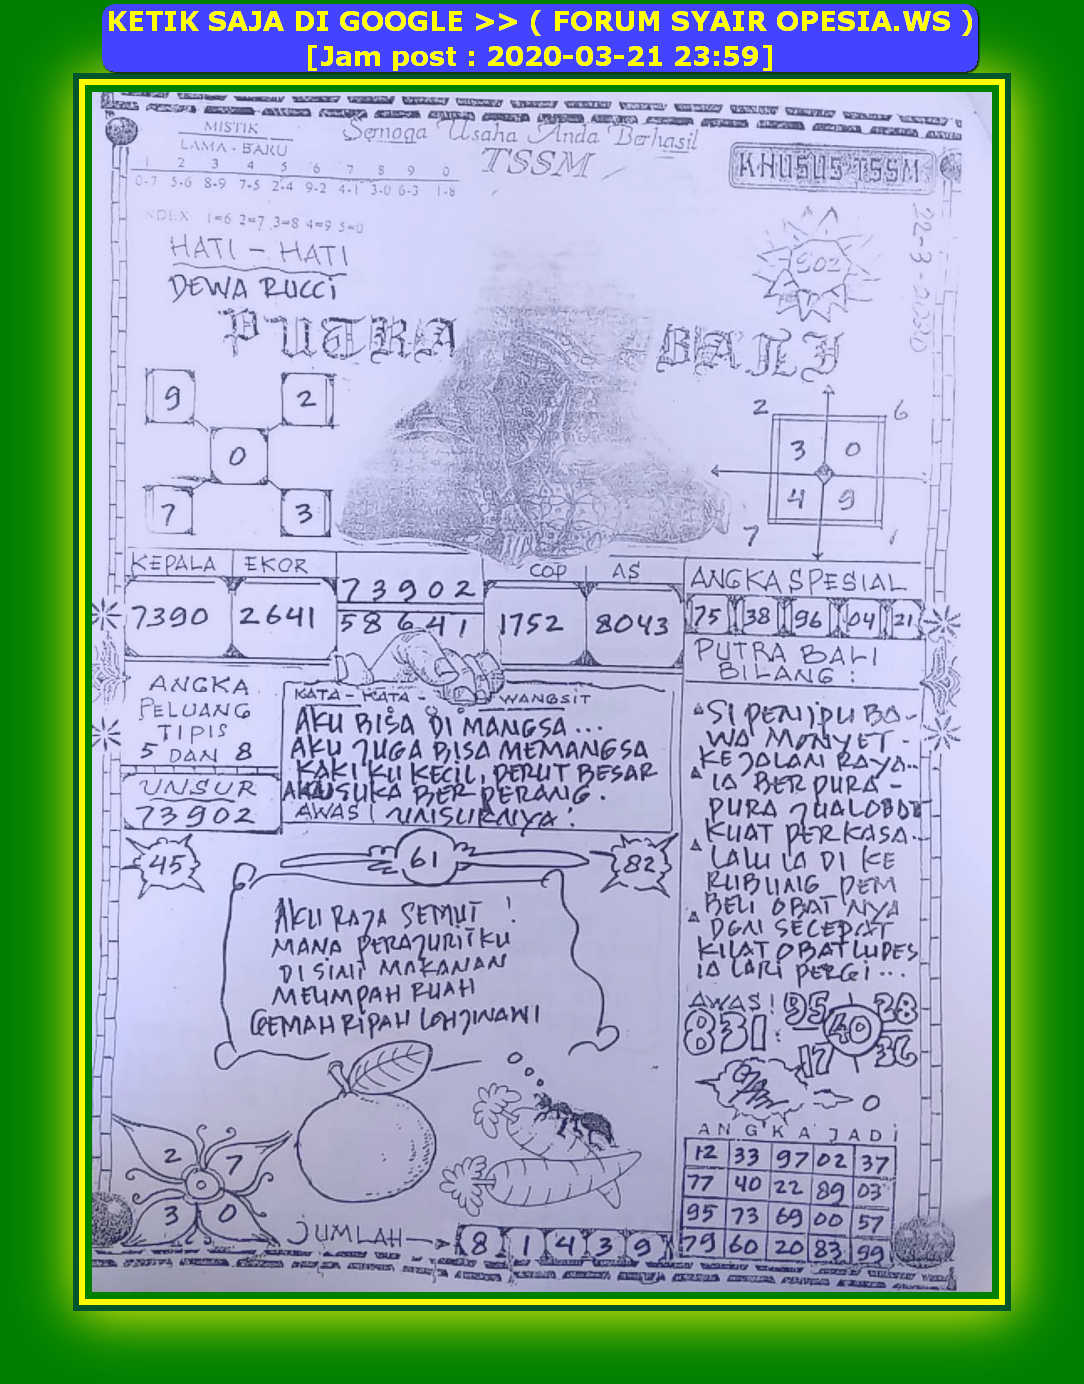 KETIK SAJA DI GOOGLE >> ( FORUM SYAIR OPESIA.WS )
[Jam post : 2020-03-21 23:59]
MISTIK
LAMA - BARU
1 2 3 4 5 6 7 8 9 0
0-7 5-6 8-9 7-5 2-4 9-2 4-1 3-0 6-3 1-8
INDEX 1=6 2=7 3=8 4=9 5=0
Semoga Usaha Anda Berhasil
TSSM
KHUSUS TSSM
HATI - HATI
DEWA RUCCI
PUTRA BALI
902
9 2
0
7 3
2 6
3 0
4 9
7 1
KEPALA EKOR
7390 2641
73902
58641
COP AS
1752 8043
ANGKA SPESIAL
75 38 96 04 21
PUTRA BALI
BILANG :
ANGKA
PELUANG
TIPIS
5 DAN 8
UNSUR
73902
KATA - KATA - WANGSIT
AKU BISA DI MANGSA ...
AKU JUGA BISA MEMANGSA
KAKI KU KECIL, PERUT BESAR
AKU SUKA BERPERANG.
AWAS UNSURNYA :
45 61 82
AKU RAJA SEMUT !
MANA PERAJURITKU
DISINI MAKANAN
MELIMPAH RUAH
GEMAH RIPAH LOHJINAWI
SI PENIPU BA-
WA MONYET -
KE JALAN RAYA...
IA BERPURA -
PURA JUAL OBAT
KUAT PERKASA...
LALU IA DI KE
RUBUNG PEM
BELI OBAT NYA
DGN SECEPAT
KILAT OBAT LUDES
IA LARI PERGI ...
AWAS ! 95 28
831 : 40
17 36
0
ANGKA JADI
12 33 97 02 37
77 40 22 89 03
95 73 69 00 57
79 60 20 83 99
2 7
0
3 0
JUMLAH
8 1 4 3 9